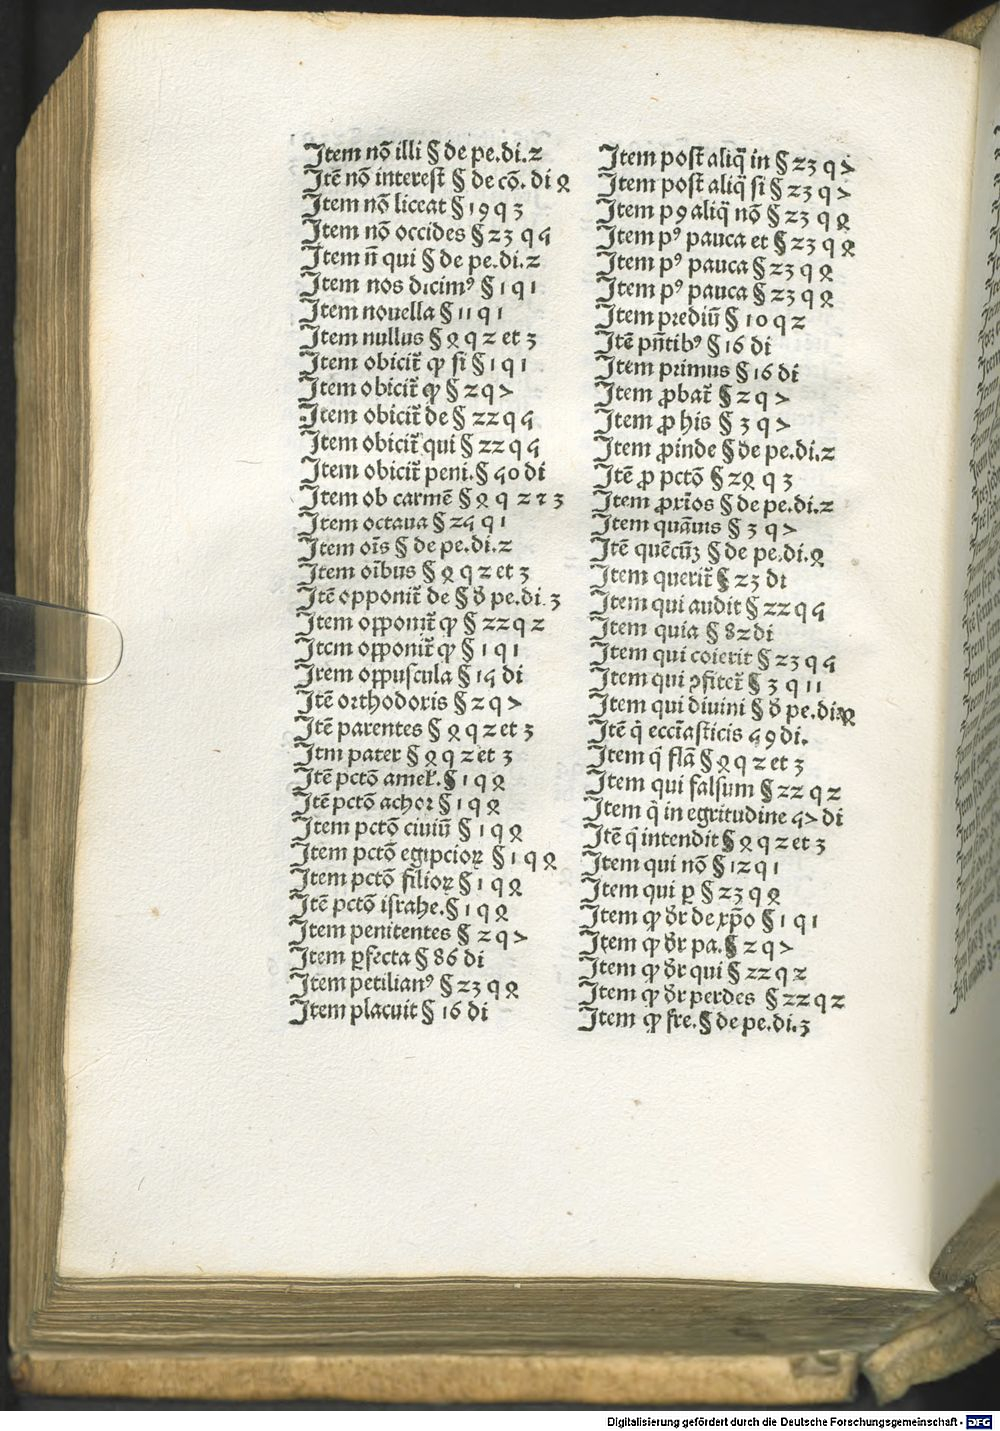 Item nō illi § de pe.di.2
Itē nō interest § de cō. di 4
Item nō liceat § 19 q 3
Item nō occides § 23 q 5
Item n̄ qui § de pe.di.2
Item nos dicimꝰ § 1 q 1
Item nouella § 11 q 1
Item nullus § 4 q 2 et 3
Item obicit̄ ꝙ si § 1 q 1
Item obicit̄ ꝙ § 2 q 7
Item obicit̄ de § 22 q 5
Item obicit̄ qui § 22 q 5
Item obicit̄ peni. § 50 di
Item ob carmē § 4 q 2 ⁊ 3
Item octaua § 25 q 1
Item oīs § de pe.di.2
Item oībus § 4 q 2 et 3
Itē opponit̄ de § ð pe.di.3
Item oꝓponit̄ ꝙ § 22 q 2
Item oꝓponit̄ ꝙ § 1 q 1
Item oꝓpuscula § 15 di
Itē orthodoris § 2 q 7
Itē parentes § 4 q 2 et 3
Itm pater § 4 q 2 et 3
Itē pctō amel̄. § 1 q 4
Itē pctō achor § 1 q 4
Item pctō ciuiū § 1 q 4
Item pctō egipcioꝝ § 1 q 4
Item pctō filioꝝ § 1 q 4
Itē pctō israhe. § 1 q 4
Item penitentes § 2 q 7
Item ꝑfecta § 86 di
Item petilianꝰ § 23 q 4
Item placuit § 16 di
Item post̄ aliq̄ in § 23 q 7
Item post̄ aliq̄ si § 23 q 7
Item pꝰ aliq̄ nō § 23 q 4
Item pꝰ pauca et § 23 q 4
Item pꝰ pauca § 23 q 4
Item pꝰ pauca § 23 q 4
Item prediū § 10 q 2
Itē pn̄tibꝰ § 16 di
Item primus § 16 di
Item ꝓbat̄ § 2 q 7
Item ꝓ his § 3 q 7
Item ꝓinde § de pe.di.2
Itē ꝓ pctō § 24 q 3
Item ꝓrīos § de pe.di.2
Item quāuis § 3 q 7
Itē quēcūꝫ § de pe.di.4
Item querit̄ § 23 di
Item qui audit § 22 q 5
Item quia § 82 di
Item qui coierit § 23 q 5
Item qui ꝯfitet̄ § 3 q 11
Item qui diuini § ð pe.di.4
Itē q̄ ecclīasticis 59 di.
Item q̄ flā § 4 q 2 et 3
Item qui falsum § 22 q 2
Item q̄ in egritudine 57 di
Itē q̄ intendit § 4 q 2 et 3
Item qui nō § 12 q 1
Item qui ꝑ § 23 q 4
Item ꝙ ðr de xp̄o § 1 q 1
Item ꝙ ðr pa. § 2 q 7
Item ꝙ ðr qui § 22 q 2
Item ꝙ ðr perdes § 22 q 2
Item ꝙ fre. § de pe.di.3
Digitalisierung gefördert durch die Deutsche Forschungsgemeinschaft - DFG